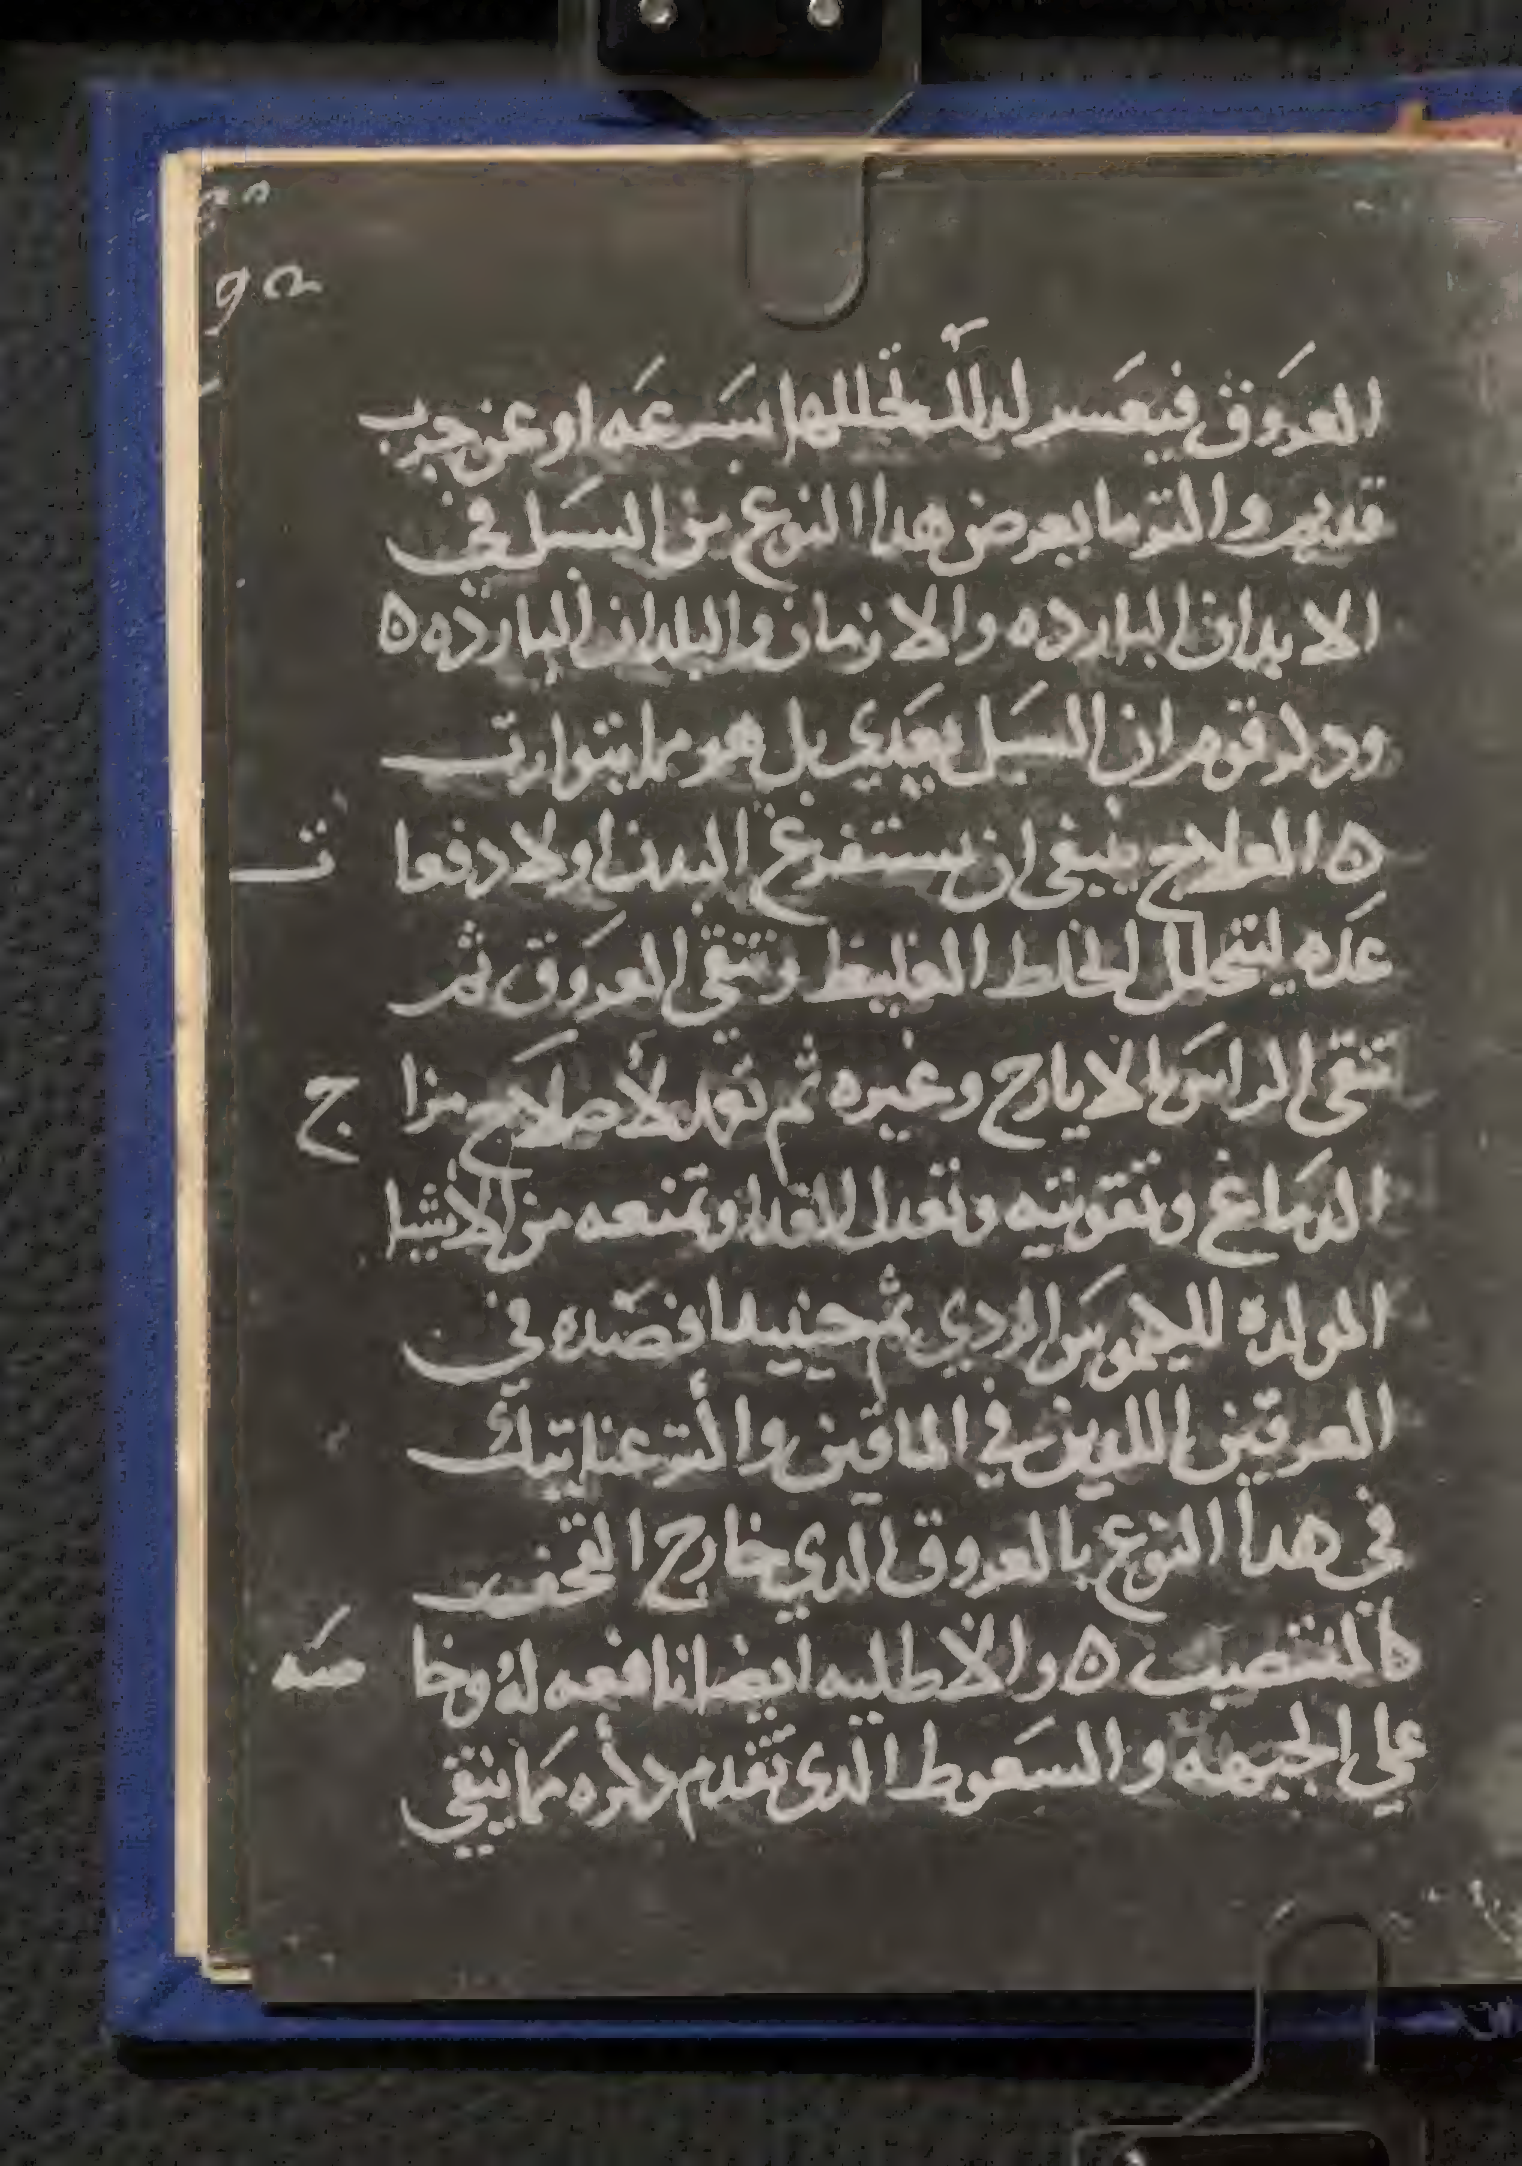 العروق فيعسر لذلك تحللها بسرعه او عن جرب
قديم واكثر ما يعرض هدا النوع من السبل في
الابدان البارده والازمان والبلدان البارده ه
ودكر قوم ان السبل يعدي بل هو مما يتوارت
ه العلاج ينبغي ان يستفرغ البدن اولا دفعا ت
عده ليتحلل الخلط الغليظ وتنقي العروق ثم
تنقي الراس بالايارج وغيره ثم تعهد لاصلاح مزا ج
الدماغ وتقويته وتعدل الغدا وتمنعه من الاشيا
المولدة للكيموس الردي ثم حينيد افصده في
العرقين اللدين في الماقين واكثر عنايتك
في هدا النوع بالعروق الدي خارج القحف
كالتقصيب ه والاطليه ايضا نافعه له وخا صه
علي الجبهه والسعوط الدي تقدم دكره مما ينقي